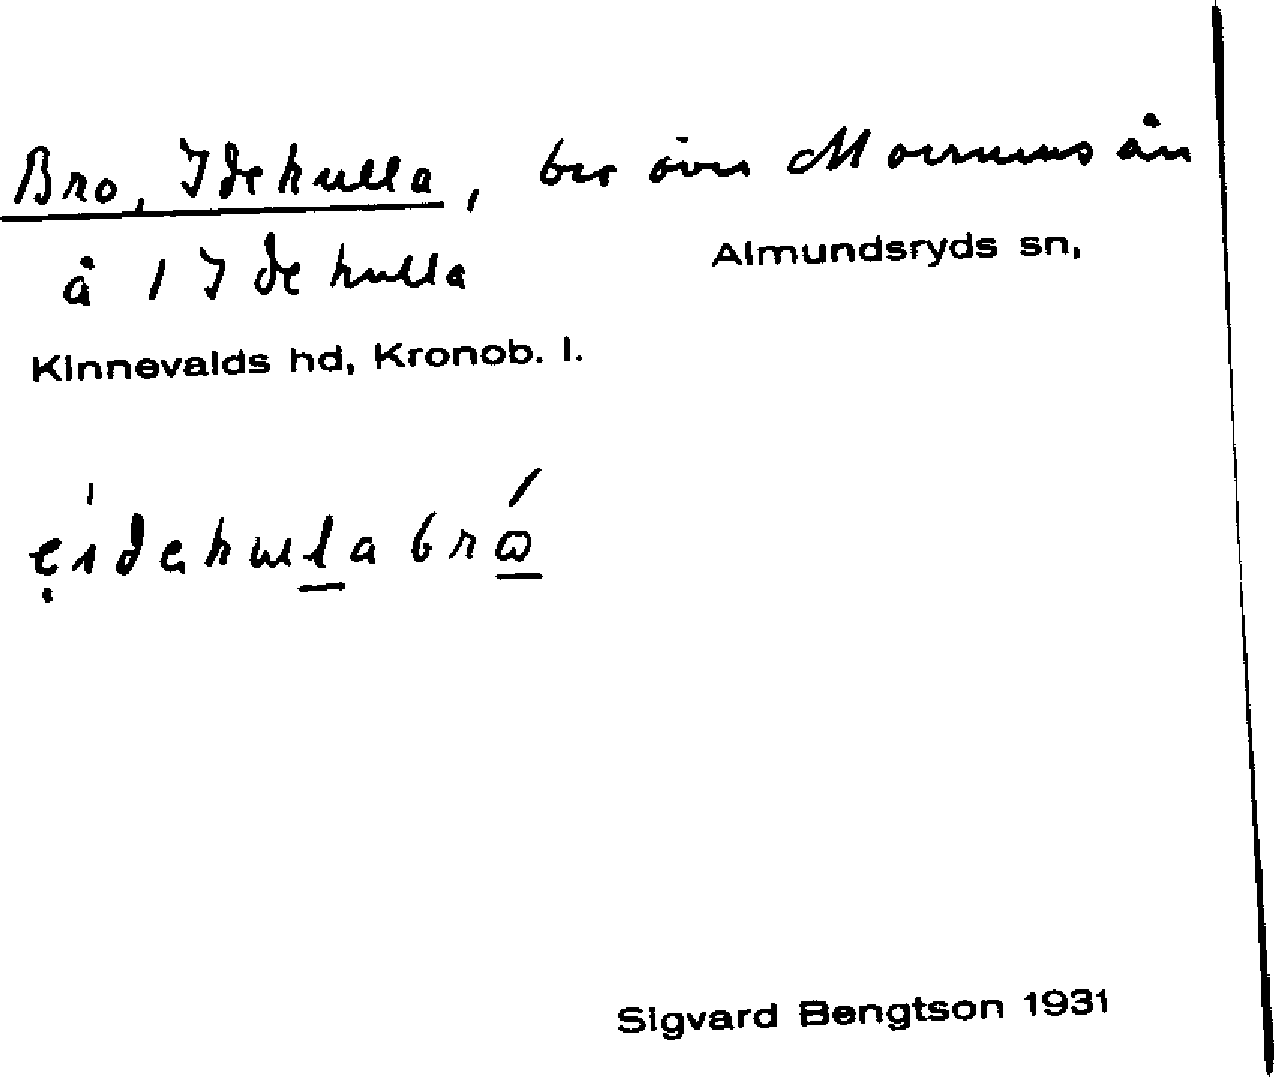 Bro, Idekulla, bro över Moerrums ån
å 1 Idekulla
Almundsryds sn,
Kinnevalds hd, Kronob. l.
Sigvard Bengtson 1931